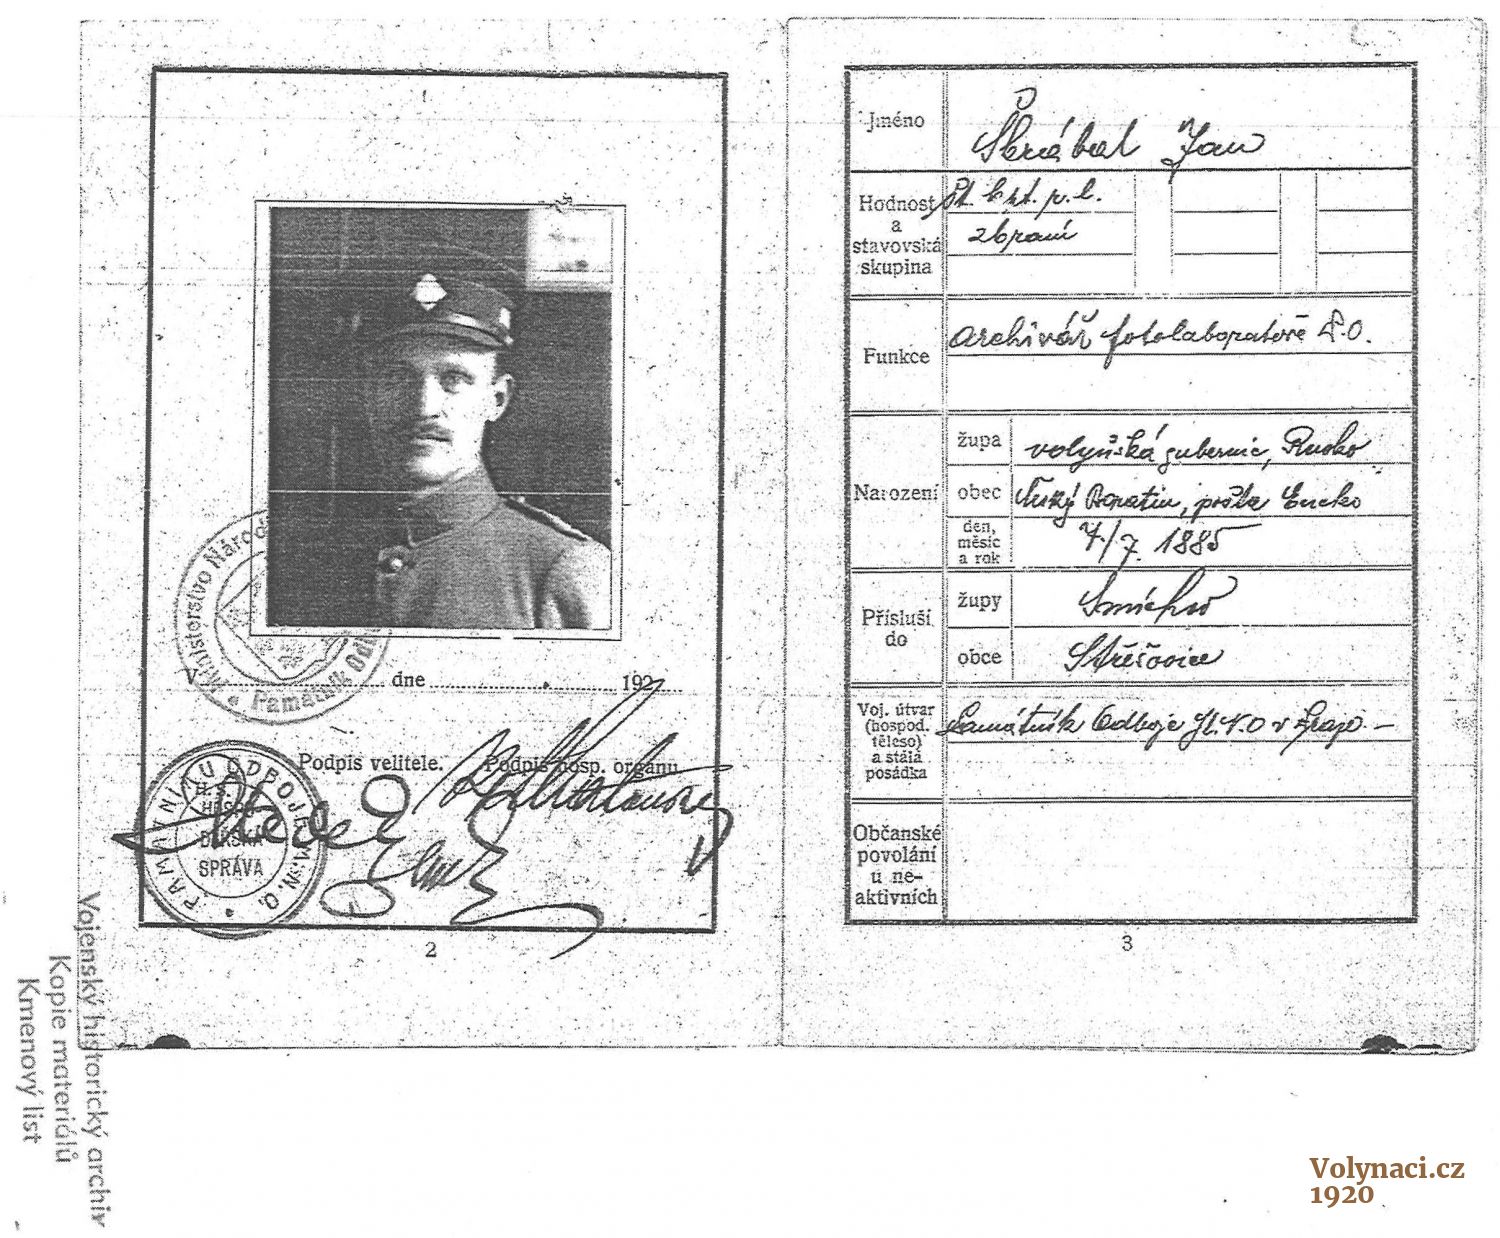 Ministerstvo Národ
Památník Odb
V dne 192
Podpis velitele. Podpis hosp. orgánu
PAMÁTNÍKU ODBOJE M.N.O.
HOSPO
DÁŘSKÁ
SPRÁVA
2
Jméno Škrábal Jan
Hodnost
a
stavovská
skupina
zbraní
Funkce archivář fotolaboratoře P.O.
Narození
župa volyňská gubernie, Rusko
obec Český Boratín, pošta Lucko
den,
měsíc
a rok
7./7. 1885
Přísluší
do
župy Smíchov
obce Střešovice
Voj. útvar
(hospod.
těleso)
a stálá
posádka
Památník Odboje M.N.O v Praze –
Občanské
povolání
u ne-
aktivních
3
Vojenský historický archiv
Kopie materiálů
Kmenový list
Volynaci.cz
1920